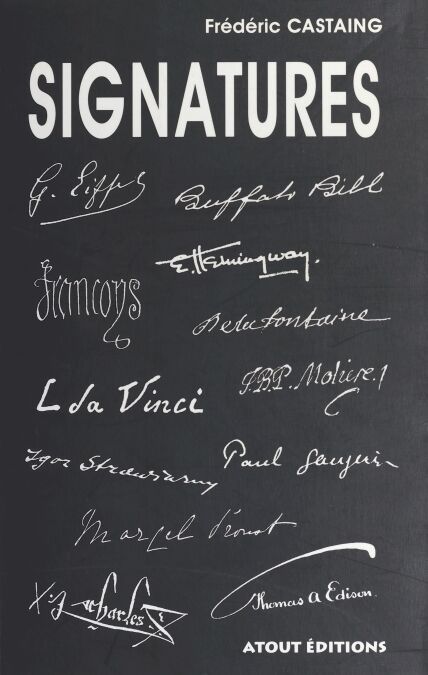 Frédéric CASTAING
SIGNATURES
G. Eiffel
Buffalo Bill
Francoys
E. Hemingway.
De la fontaine
L da Vinci
J.B.P. Moliere.
Igor Strawinsky
Paul Gauguin
Marcel Proust
Charles
Thomas A Edison.
ATOUT ÉDITIONS